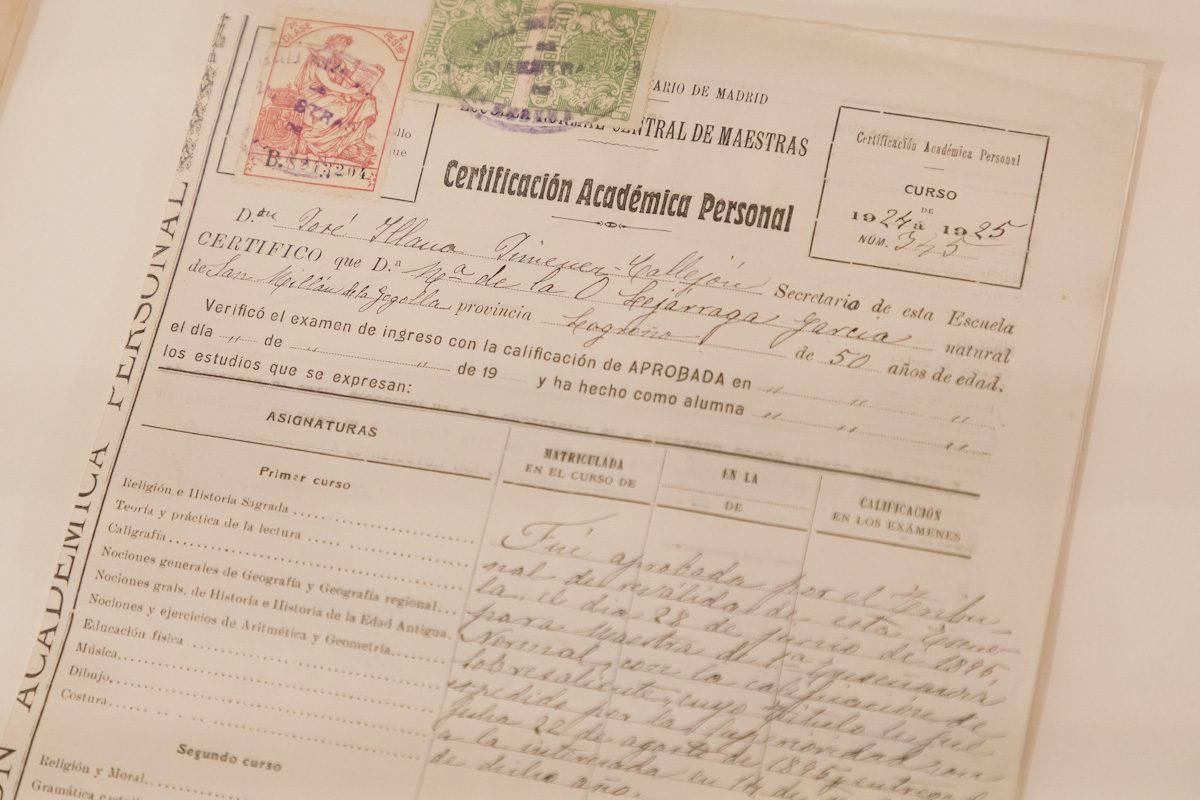 7ª CLASE
2 PESTAS
B.8213,294
TIMBRE
PROVINCIAL
MAESTRAS
ARIO DE MADRID
NORMAL CENTRAL DE MAESTRAS
Certificación Académica Personal
Certificación Académica Personal
CURSO
DE
1924 a 1925
NÚM. 345
llo
que
D. José Illana Jimenez-Callejón Secretario de esta Escuela
CERTIFICO que D.ª Mª de la O Lejárraga García natural
de San Millán de la Gogolla provincia Logroño de 50 años de edad.
Verificó el examen de ingreso con la calificación de APROBADA en " " "
el día " de " " de 19 y ha hecho como alumna " " "
los estudios que se expresan:
ASIGNATURAS
MATRICULADA
EN EL CURSO DE
EN LA
DE
CALIFICACIÓN
EN LOS EXÁMENES
Primer curso
Religión e Historia Sagrada
Teoría y práctica de la lectura
Caligrafía
Nociones generales de Geografía y Geografía regional
Nociones grals. de Historia e Historia de la Edad Antigua
Nociones y ejercicios de Aritmética y Geometría
Educación física
Música
Dibujo
Costura
Segundo curso
Religión y Moral
Gramática
Fué aprobada por el Tribu-
nal de reválida de esta Escue-
la, el día 28 de junio de 1895,
para Maestra de 1ª Enseñanza
Normal, con la calificación de
Sobresaliente, cuyo título le fué
expedido por la Superioridad con
fecha 22 de agosto de 1895 y entrega
a la interesada en 14 de
de dicho año.
ACADÉMICA PERSONAL